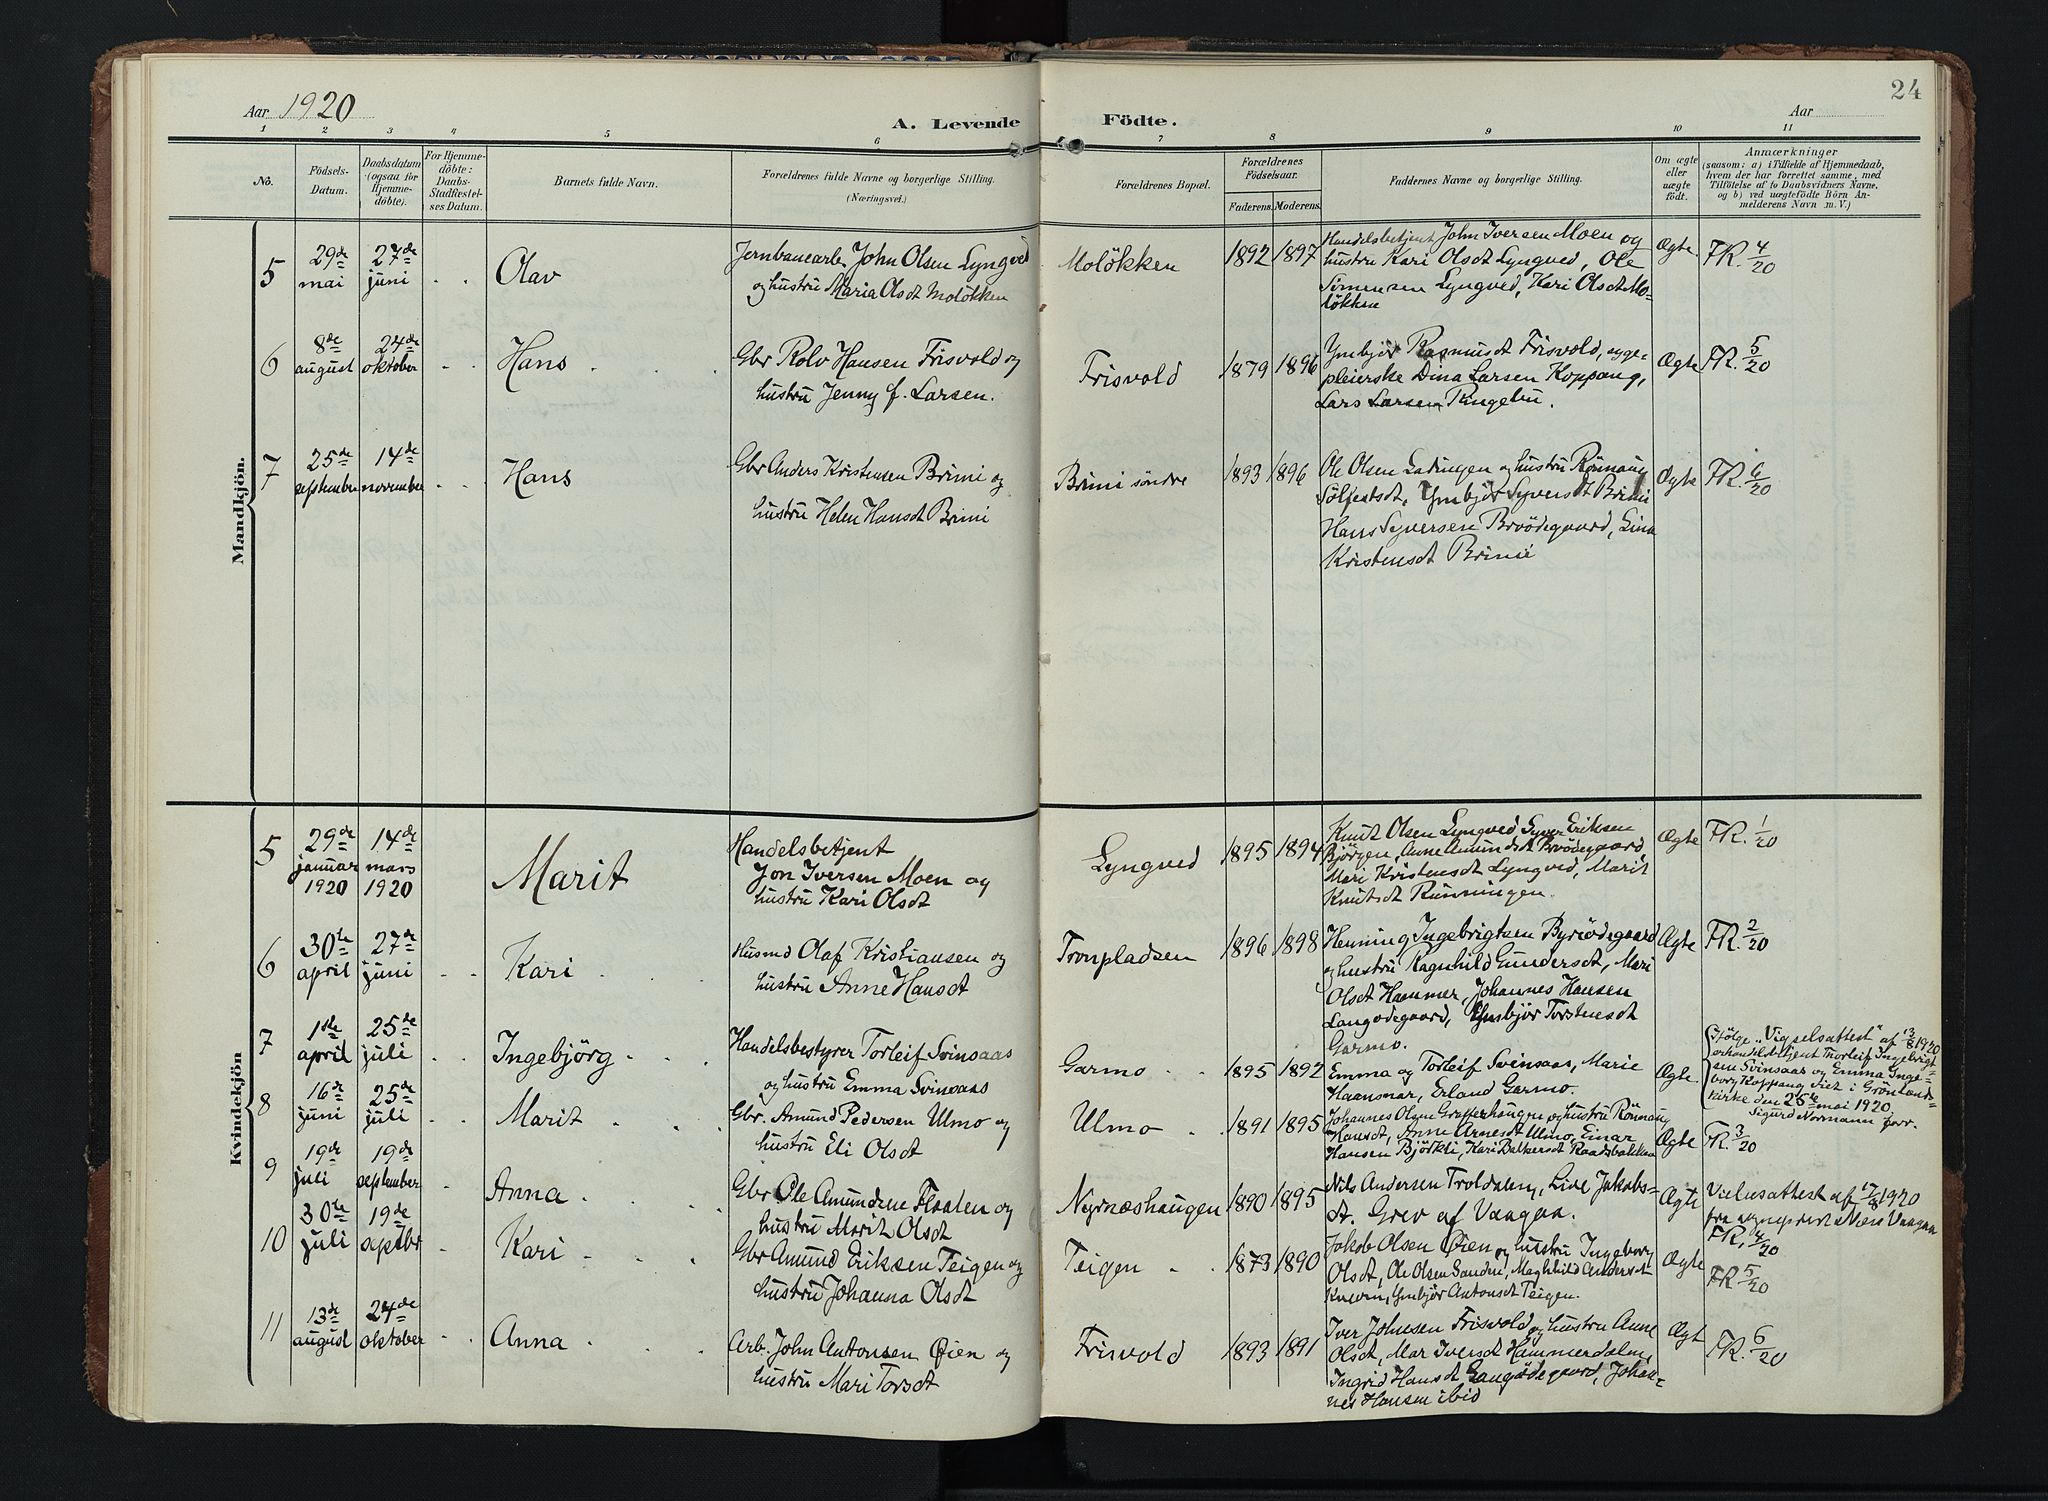 24
Aar 1920
A. Levende Födte.
Aar
1 2 3 4 5 6 7 8 9 10 11
No.
Födsels-
Datum.
Daabsdatum
(ogsaa for
Hjemme-
döbte).
For Hjemme-
döbte:
Daabs-
Stadfæstel-
ses Datum.
Barnets fulde Navn.
Forældrenes fulde Navne og borgerlige Stilling.
(Næringsvei.)
Forældrenes Bopæl.
Forældrenes
Födselsaar.
Faderens. Moderens.
Faddernes Navne og borgerlige Stilling.
Om ægte
eller
uægte
født.
Anmærkninger
(saasom: a) i Tilfælde af Hjemmedaab,
hvem der har forrettet samme, med
Tilföielse af to Daabsvidners Navne,
og b) ved uægtefödte Börn An-
melderens Navn m. V.)
Mandkjön.
5
29de
mai
27de
juni
Olav
Jernbanearb. John Olsen Lyngved
og hustru Maria Olsdt Moløkken
Moløkken
1892 1897
Handelsbetjent John Iversen Moen og
hustru Kari Olsdt Lyngved, Ole
Simensen Lyngved, Kari Olsdt Mo-
løkken
Ægte
FR. 4/20
6
8de
august
24de
oktober
Hans
Gbr Rolv Hansen Frisvold og
hustru Jenny f. Larsen.
Frisvold
1879 1896
Ymbjør Rasmusdt Frisvold, syge-
pleierske Dina Larsen Koppang,
Lars Larsen Ringebu.
Ægte
FR. 5/20
7
25de
september
14de
november
Hans
Gbr Anders Kristensen Brimi og
hustru Helen Hansdt Brimi
Brimi søndre
1893 1896
Ole Olsen Ladingen og hustru Rønnaug
Sølfestdt, Ymbjør Syversdt Brimi
Hans Syversen Brødegaard, Lina
Kristensdt Brimi
Ægte
FR. 6/20
Kvindekjön
5
29de
januar
1920
14de
mars
1920
Marit
Handelsbetjent
Jon Iversen Moen og
hustru Kari Olsdt
Lyngved
1895 1894
Knut Olsen Lyngved, Syver Eriksen
Bjørgen, Anne Amundsdt Brødegaard
Mari Kristensdt Lyngved, Marit
Knutsdt Runningen.
Ægte
FR. 1/20
6
30te
april
27de
juni
Kari
Husmd Olaf Kristiansen og
hustru Anne Hansdt
Tronpladsen
1896 1898
Henning Ingebrigtsen Byrødegaard
og hustru Ragnhild Gundersdt, Mari
Olsdt Hammer, Johannes Hansen
Langødegaard, Ymbjør Torstensdt
Garmo.
Ægte
FR. 2/20
7
1ste
april
25de
juli
Ingebjörg
Handelsbestyrer Torleif Svinsaas
og hustru Emma Svinsaas
Garmo
1895 1892
Emma og Torleif Svinsaas, Marie
Haansnar, Erland Garmo.
Ægte
Ifølge "Vigselsattest" af 13/8 1920
er handelsbetjent Thorleif Ingebrigt-
sen Svinsaas og Emma Inge-
borg Koppang viet i Grønlands-
kirke den 25de mai 1920
Sigurd Normann
8
16de
juni
25de
juli
Marit
Gbr. Amund Pedersen Ulmo og
hustru Eli Olsdt
Ulmo
1891 1895
Johannes Olsen Graffer haugen og hustru Rønnaug
Hansdt, Anne Arnesdt Ulmo, Einar
Hansen Bjørkli, Kari Balkersdt Raadsbakken
Ægte
FR. 3/20
9
19de
juli
19de
september
Anna
Gbr Ole Amundsen Flaaten og
hustru Marit Olsdt
Nyrnæshaugen
1890 1895
Nils Andersen Troldalen, Live Jakobs-
dt. Grev af Vaagaa.
Ægte
Vielsesattest af 17/8 1920
fra sogneprest Næss Vaagaa
FR. 4/20
10
30te
juli
19de
septbr
Kari
Gbr Amund Eriksen Teigen og
hustru Johanna Olsdt
Teigen
1873 1890
Jakob Olsen Øien og hustru Ingeborg
Olsdt, Ole Olsen Sanden, Maghild Andersdt
Kvern, Ymbjør Antonsdt Teigen.
Ægte
FR 5/20
11
13de
august
24de
oktober
Anna
Arb. John Antonsen Øien og
hustru Mari Torsdt
Frisvold
1893 1891
Iver Johnsen Frisvold og hustru Anne
Olsdt, Mar Iversdt Hammerdalen,
Ingrid Hansdt Langødegaard, Johan-
nes Hansen ibid
Ægt
FR. 6/20